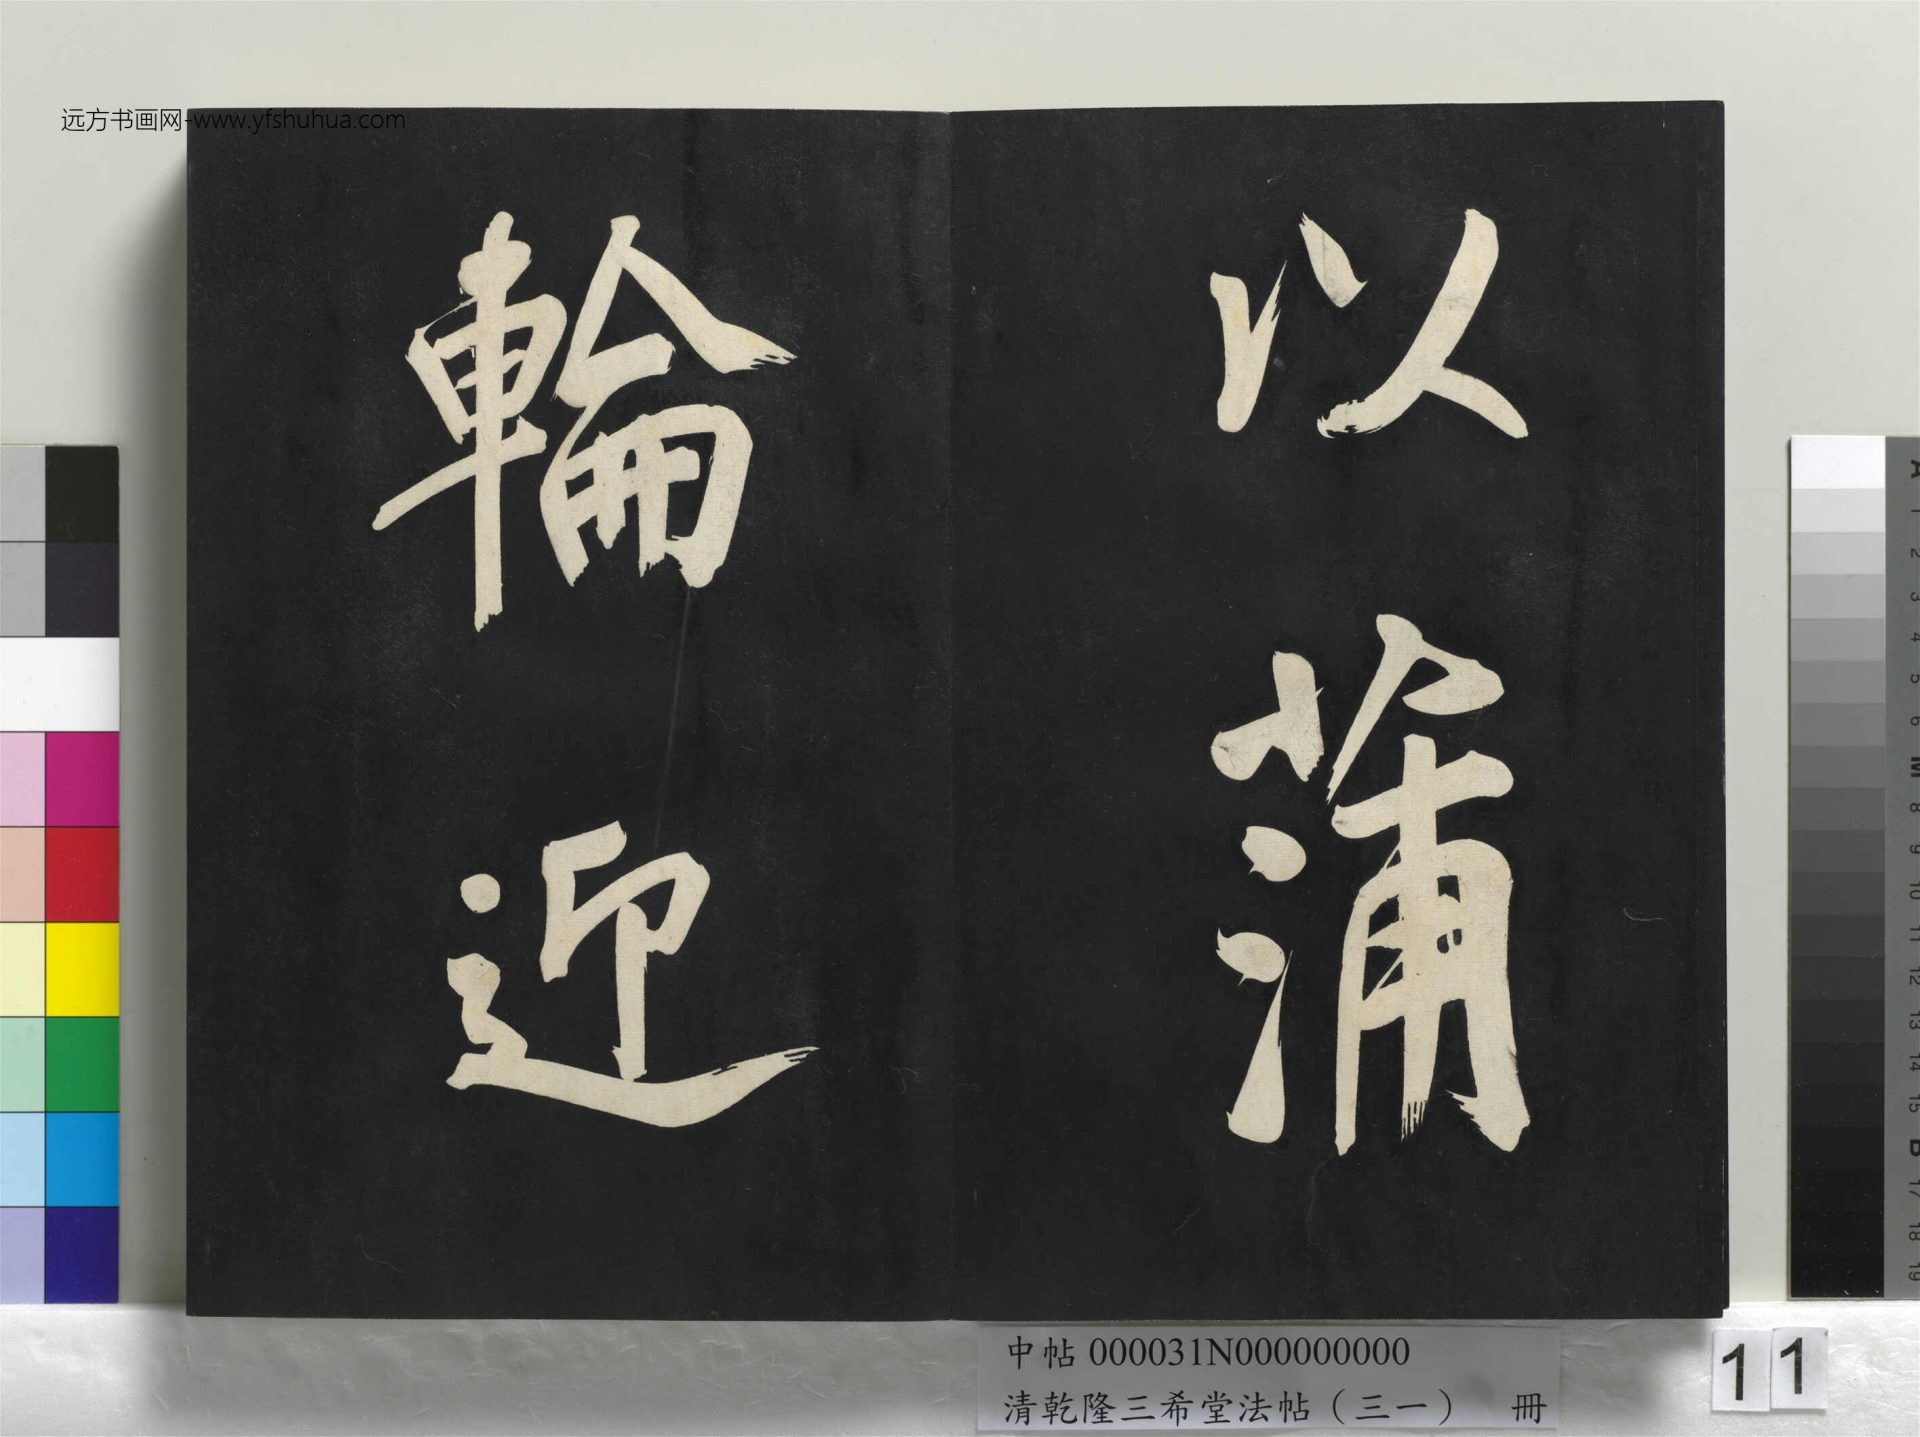 远方书画网-www.yfshuhua.com
以蒲
輪迎
中帖 000031N000000000
清乾隆三希堂法帖（三一） 冊
11
A 1 2 3 4 5 6 M 8 9 10 11 12 13 14 15 B 17 18 19